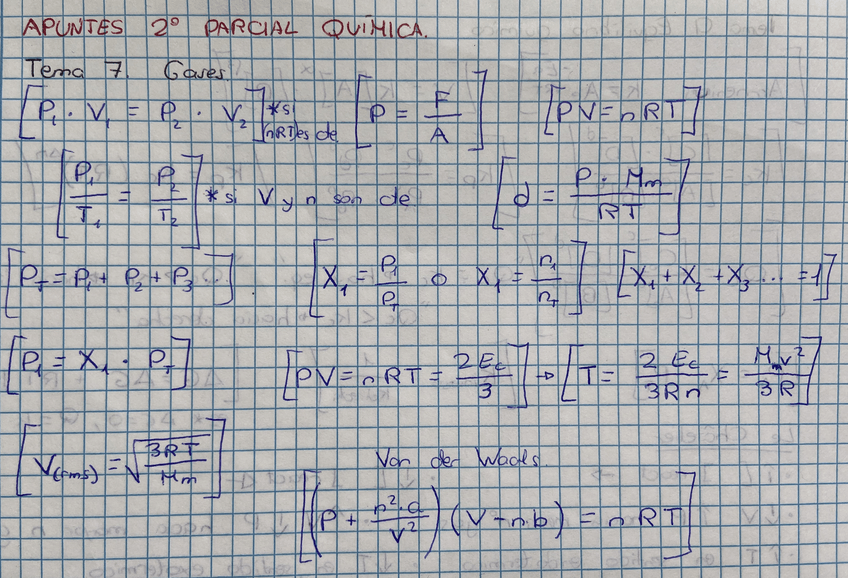 APUNTES 2º PARCIAL QUÍMICA.
Tema 7. Gases.
[P₁ · V₁ = P₂ · V₂] *si (nRT) es de [P = F/A] [PV = nRT]
[P₁/T₁ = P₂/T₂] * si V y n son de [d = P · Mm/RT]
[P_T = P₁ + P₂ + P₃...]. [X₁ = P₁/P_T o X₁ = n₁/n_T] [X₁ + X₂ + X₃ ... = 1]
[P₁ = X₁ · P_T] [PV = nRT = 2Ec/3] → [T = 2Ec/3Rn = Mm v²/3R]
[V(rms) = √(3RT/Mm)]
Van der Waals.
[(P + n²·a/V²) (V - n·b) = nRT]